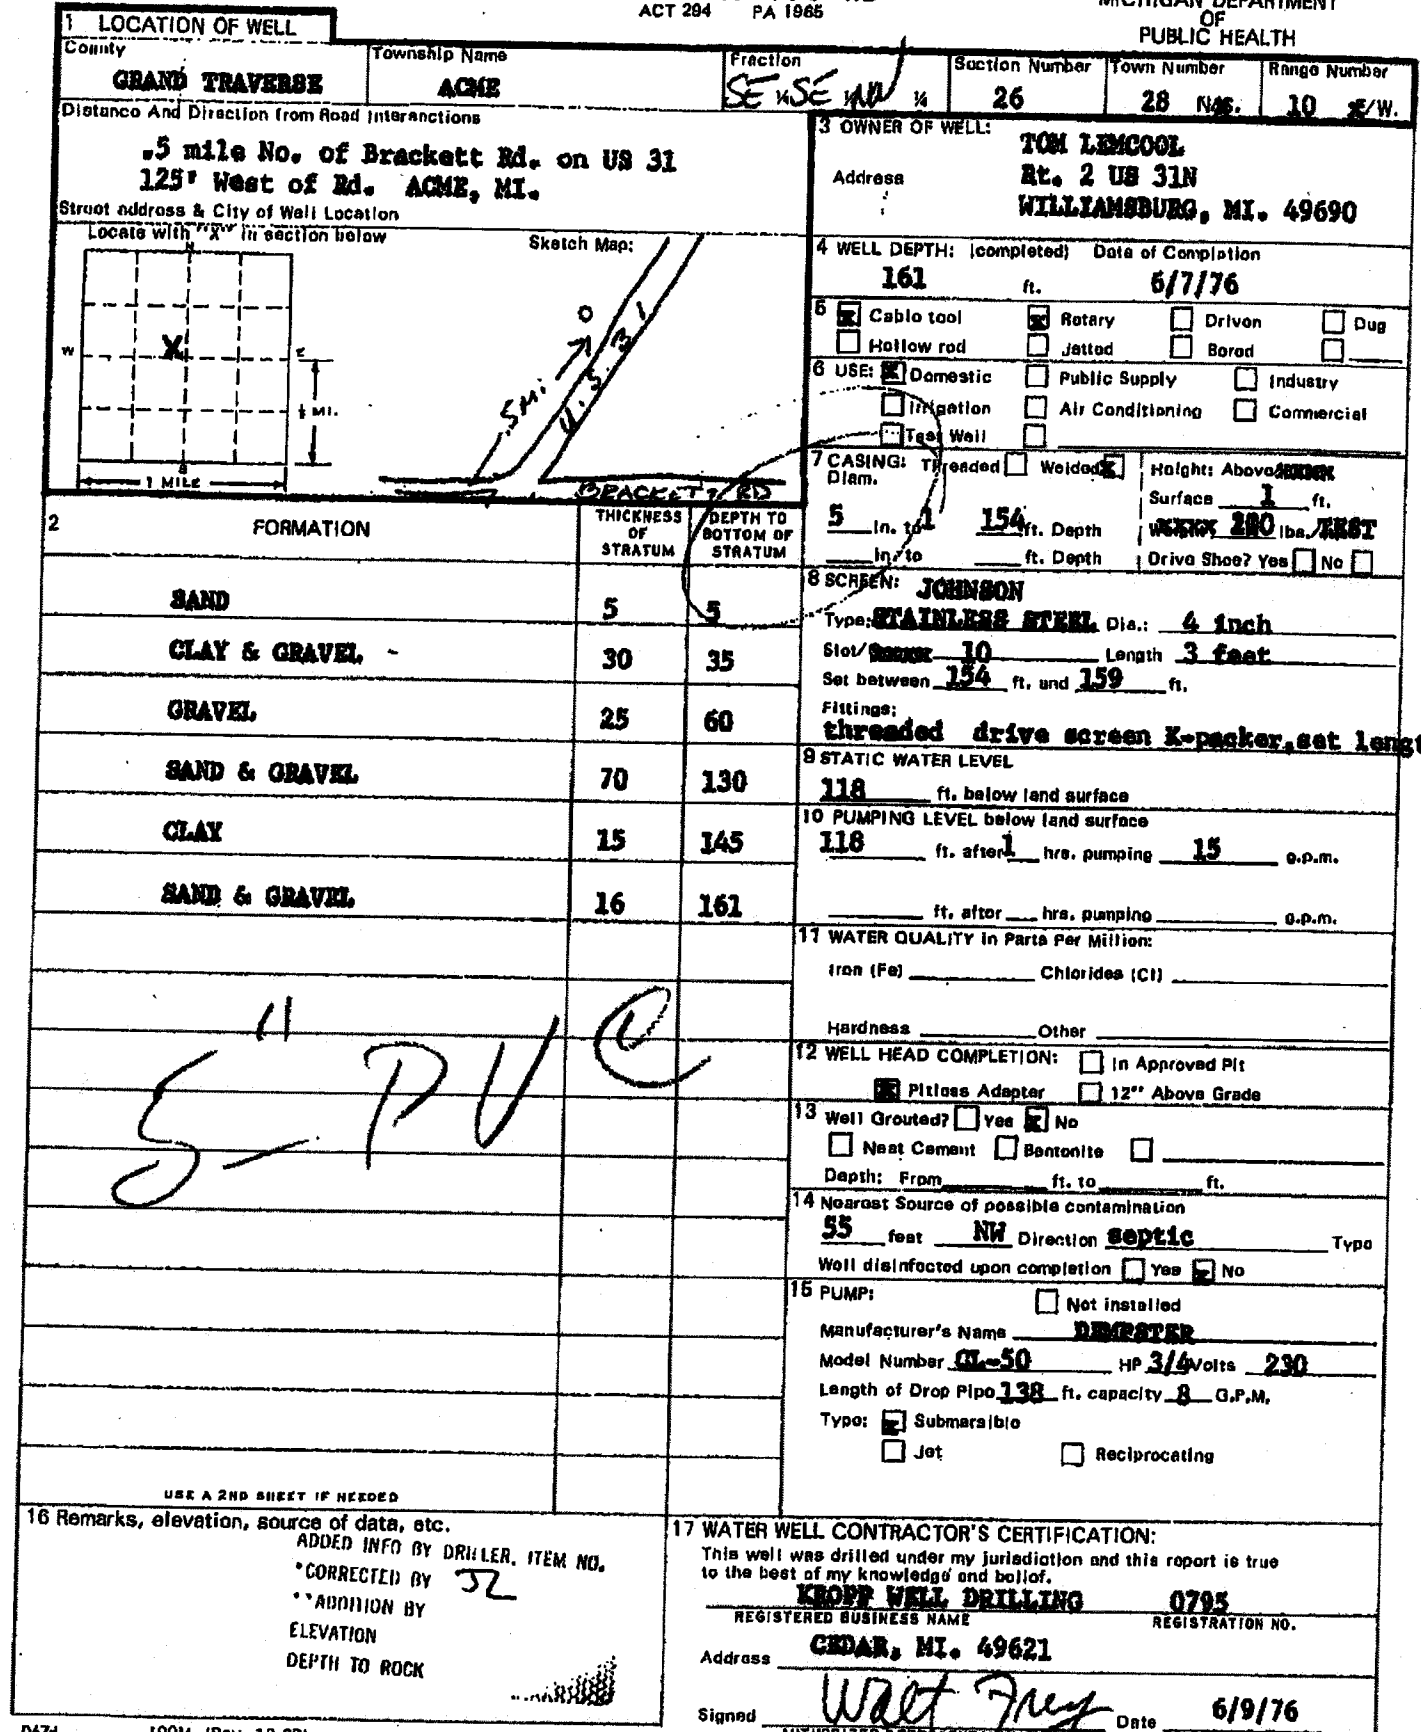 ACT 294 PA 1965
MICHIGAN DEPARTMENT
OF
PUBLIC HEALTH
1 LOCATION OF WELL
County
GRAND TRAVERSE
Township Name
ACME
Fraction
SE ¼ SE ¼ NW ¼
Section Number
26
Town Number
28 N/S.
Range Number
10 E/W.
Distance And Direction from Road Intersections
.5 mile No. of Brackett Rd. on US 31
125' West of Rd. ACME, MI.
Street address & City of Well Location
Locate with "X" in section below
Sketch Map:
N
W
X
E
½ MI.
S
1 MILE
.5 MI.
U.S. 31
BRACKETT RD
3 OWNER OF WELL:
TOM LEMCOOL
Address
Rt. 2 US 31N
WILLIAMSBURG, MI. 49690
4 WELL DEPTH: (completed) Date of Completion
161 ft. 6/7/76
5 Cable tool Rotary Driven Dug
Hollow rod Jetted Bored
6 USE: Domestic Public Supply Industry
Irrigation Air Conditioning Commercial
Test Well
7 CASING: Threaded Welded
Diam.
5 in. to 154 ft. Depth
in. to ft. Depth
Height: Above
Surface 1 ft.
lbs./
Drive Shoe? Yes No
2 FORMATION
THICKNESS OF STRATUM
DEPTH TO BOTTOM OF STRATUM
SAND 5 5
CLAY & GRAVEL - 30 35
GRAVEL 25 60
SAND & GRAVEL 70 130
CLAY 15 145
SAND & GRAVEL 16 161
5" PVC
USE A 2ND SHEET IF NEEDED
8 SCREEN: JOHNSON
Type: STAINLESS STEEL Dia.: 4 inch
Slot/ 10 Length 3 feet
Set between 154 ft. and 159 ft.
Fittings:
threaded drive screen K-packer, set lengt
9 STATIC WATER LEVEL
118 ft. below land surface
10 PUMPING LEVEL below land surface
118 ft. after 1 hrs. pumping 15 g.p.m.
ft. after hrs. pumping g.p.m.
11 WATER QUALITY in Parts Per Million:
Iron (Fe) Chlorides (Cl)
Hardness Other
12 WELL HEAD COMPLETION: In Approved Pit
Pitless Adapter 12" Above Grade
13 Well Grouted? Yes No
Neat Cement Bentonite
Depth: From ft. to ft.
14 Nearest Source of possible contamination
55 feet NW Direction septic Type
Well disinfected upon completion Yes No
15 PUMP:
Not installed
Manufacturer's Name DEMPSTER
Model Number GL-50 HP 3/4 Volts 230
Length of Drop Pipe 138 ft. capacity 8 G.P.M.
Type: Submersible
Jet Reciprocating
16 Remarks, elevation, source of data, etc.
ADDED INFO BY DRILLER, ITEM NO.
*CORRECTED BY JZ
**ADDITION BY
ELEVATION
DEPTH TO ROCK
17 WATER WELL CONTRACTOR'S CERTIFICATION:
This well was drilled under my jurisdiction and this report is true
to the best of my knowledge and belief.
KROPP WELL DRILLING 0795
REGISTERED BUSINESS NAME REGISTRATION NO.
Address CEDAR, MI. 49621
Signed Walt Frey Date 6/9/76